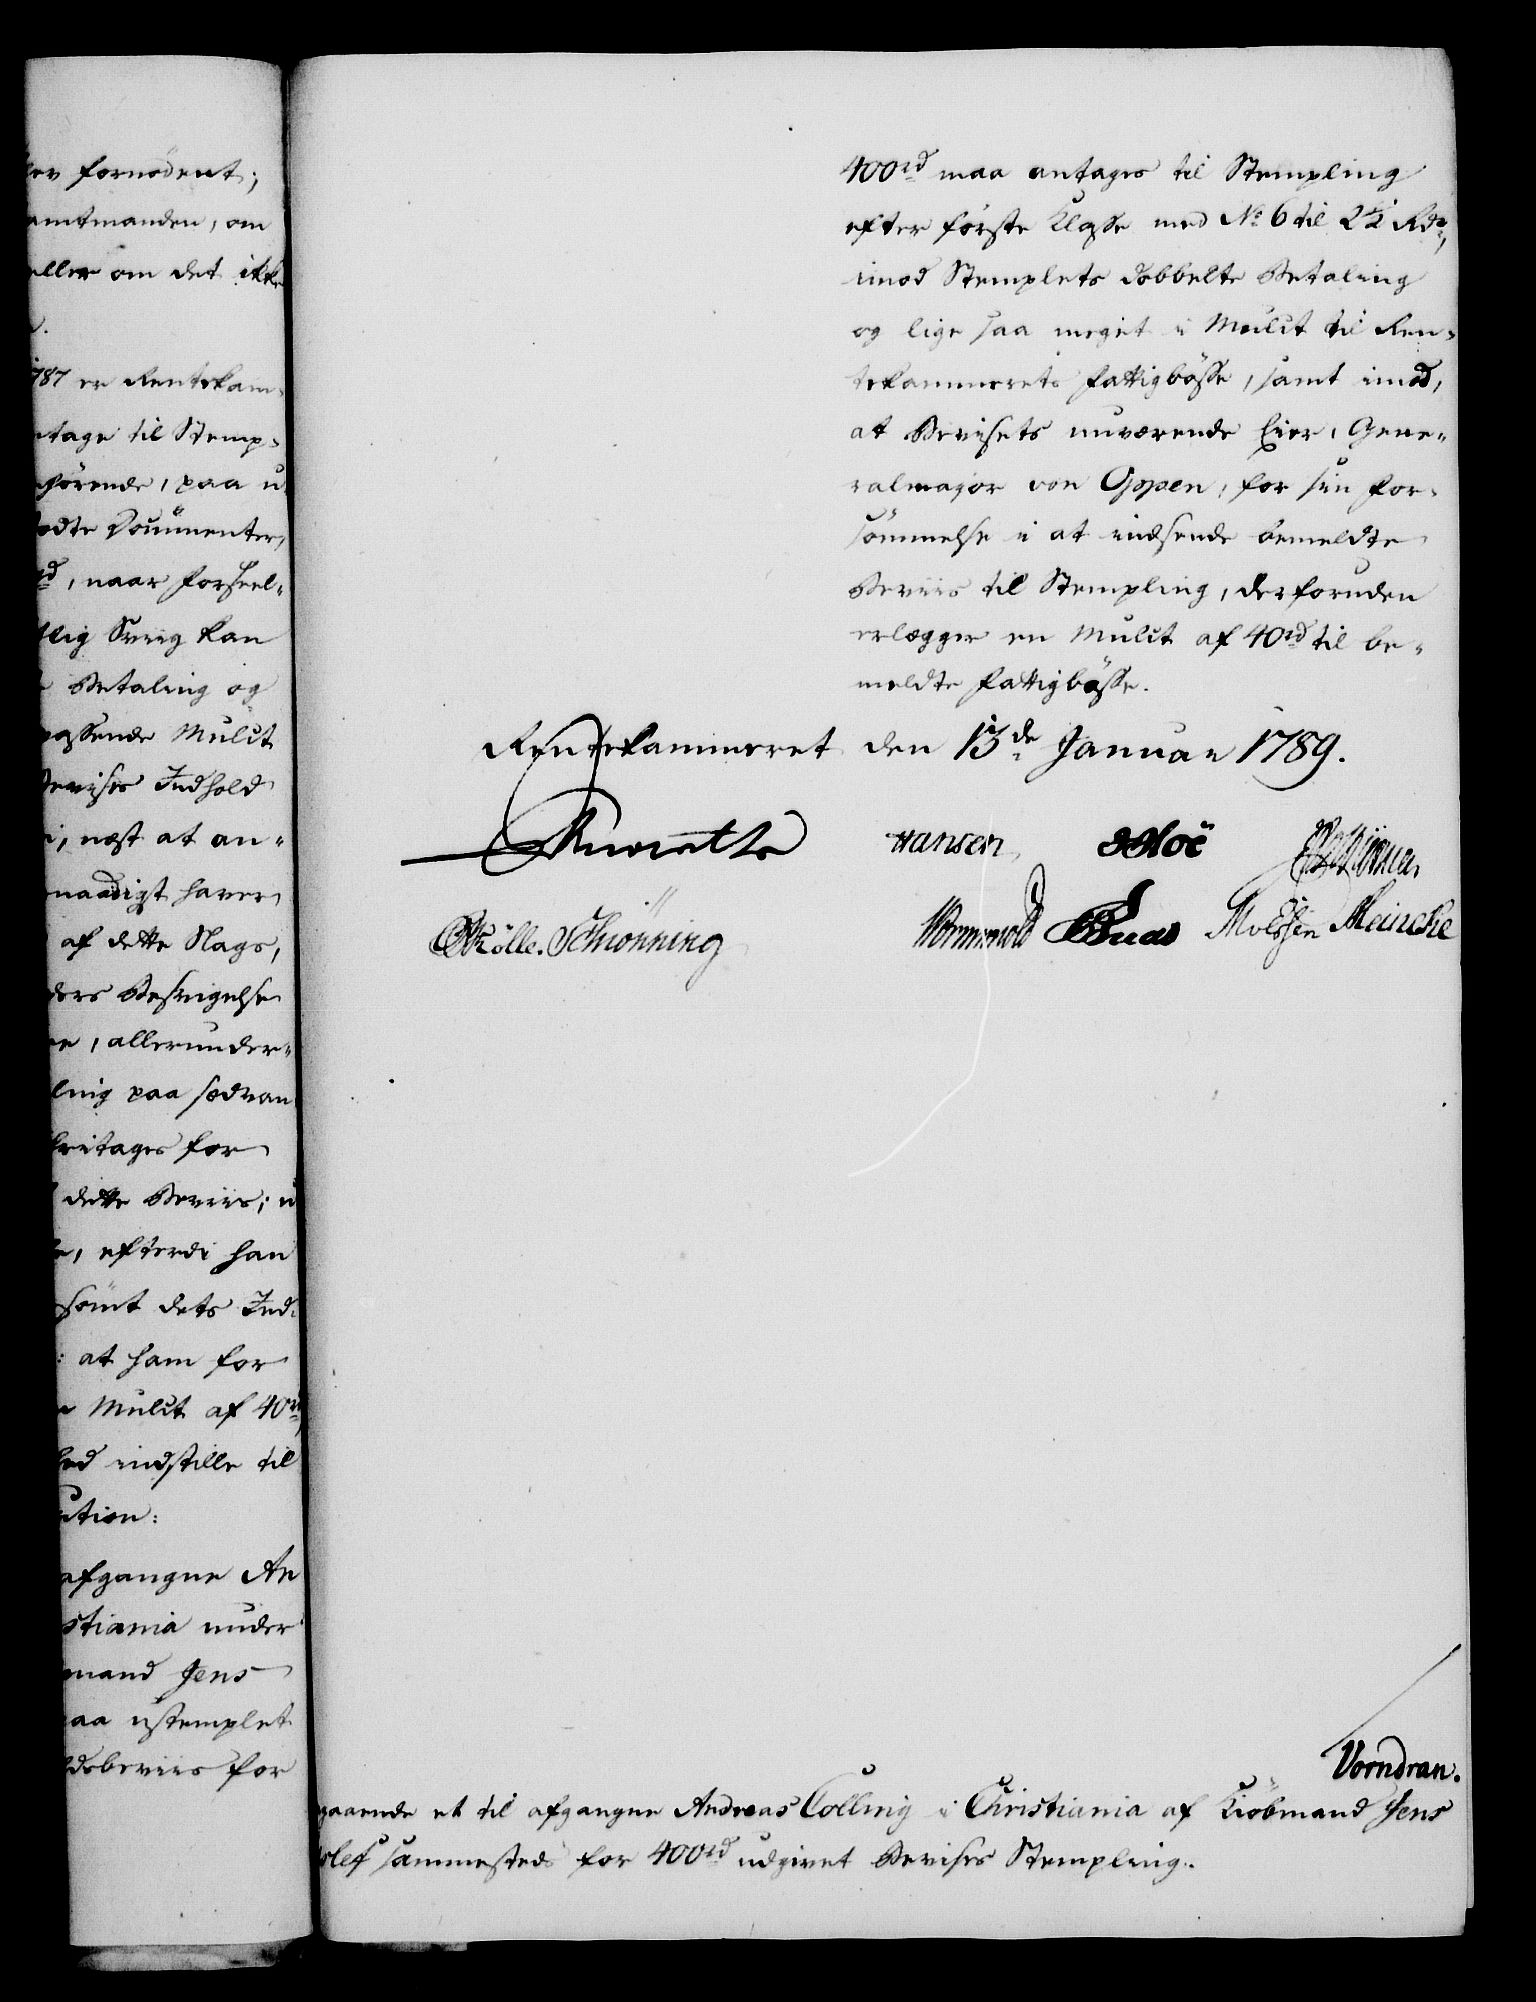 lev fornødent;
amtmanden, om
eller om det ikke
1787 er Rentekam-
ntage til Stemp-
hørende, paa u
Documenter,
rd, naar forheel-
Sviig kan
Betaling og
passende Mulct
Bevises Indhold
i, næst at an-
naadigst haver
af dette Slags,
ders Besvigelse
allerunder-
ling paa sædvan
fritages for
dette Beviis; u
efterdi han
sömt dets Ind-
: at ham for
Mulct af 40rd
hed indstille til
ution:
afgangne An
stiania under
mand Jens
paa ustemplet
ldsbeviis for
400rd maa antages til Stempling
efter förste Klasse med No 6 til 2½ Rdr,
imod Stemplets dobbelte Betaling
og lige saa meget i Mulct til Ren-
tekammerets Fattigbösse, samt imod,
at Bevisets nuværende Eier, Gene-
ralmajor von Oppen, for sin For-
sömmelse i at indsende bemeldte
Beviis til Stempling, desforuden
erlægger en Mulct af 40rd til be-
meldte Fattigbösse.
Rentekammeret den 13de Januar 1789.
Hansen
Schiönning Wormskiold Meincke
Vorndran.
gaaende et til afgangne Andreas Colling i Christiania af Kiöbmand Jens
sammesteds for 400rd udgivet Bevises Stempling.